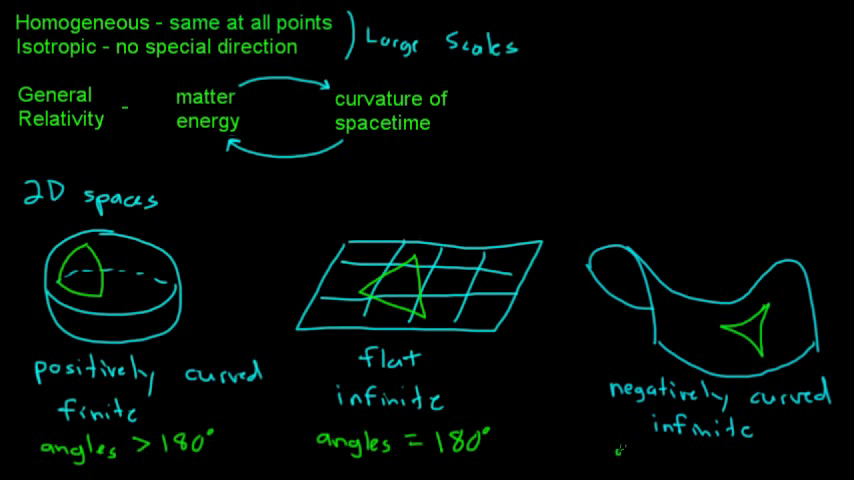 Homogeneous - same at all points
Isotropic - no special direction
Large Scales
General Relativity -
matter energy
curvature of spacetime
2D spaces
positively curved
finite
angles > 180°
flat
infinite
angles = 180°
negatively curved
infinite